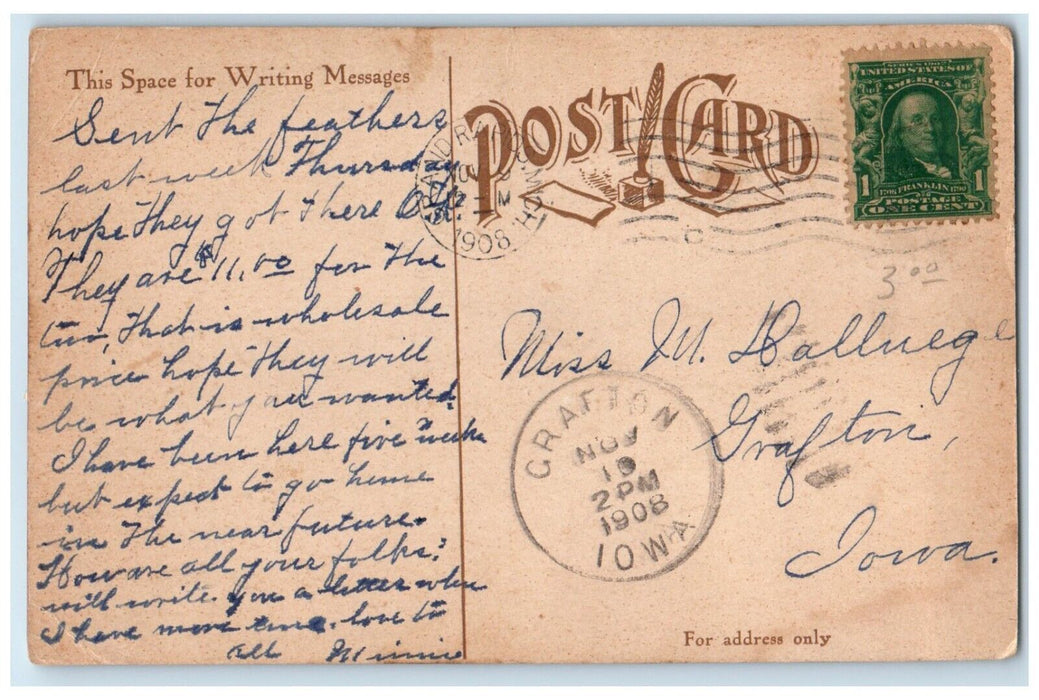 This Space for Writing Messages
POST CARD
Sent the feathers
last week Thursday
hope they got there O.K.
They are $11.00 for the
two, that is wholesale
price hope they will
be what you wanted.
I have been here five weeks
but expect to go home
in the near future.
How are all your folks?
will write you a letter when
I have more time. love to
all Minnie
GRAND RAPIDS
MICH.
1908
SERIES 1902
UNITED STATES OF
AMERICA
1706 FRANKLIN 1790
1 1
POSTAGE
ONE CENT
3.00
Miss M. Halluege
Grafton,
Iowa.
GRAFTON
NOV
10
2 PM
1908
IOWA
For address only